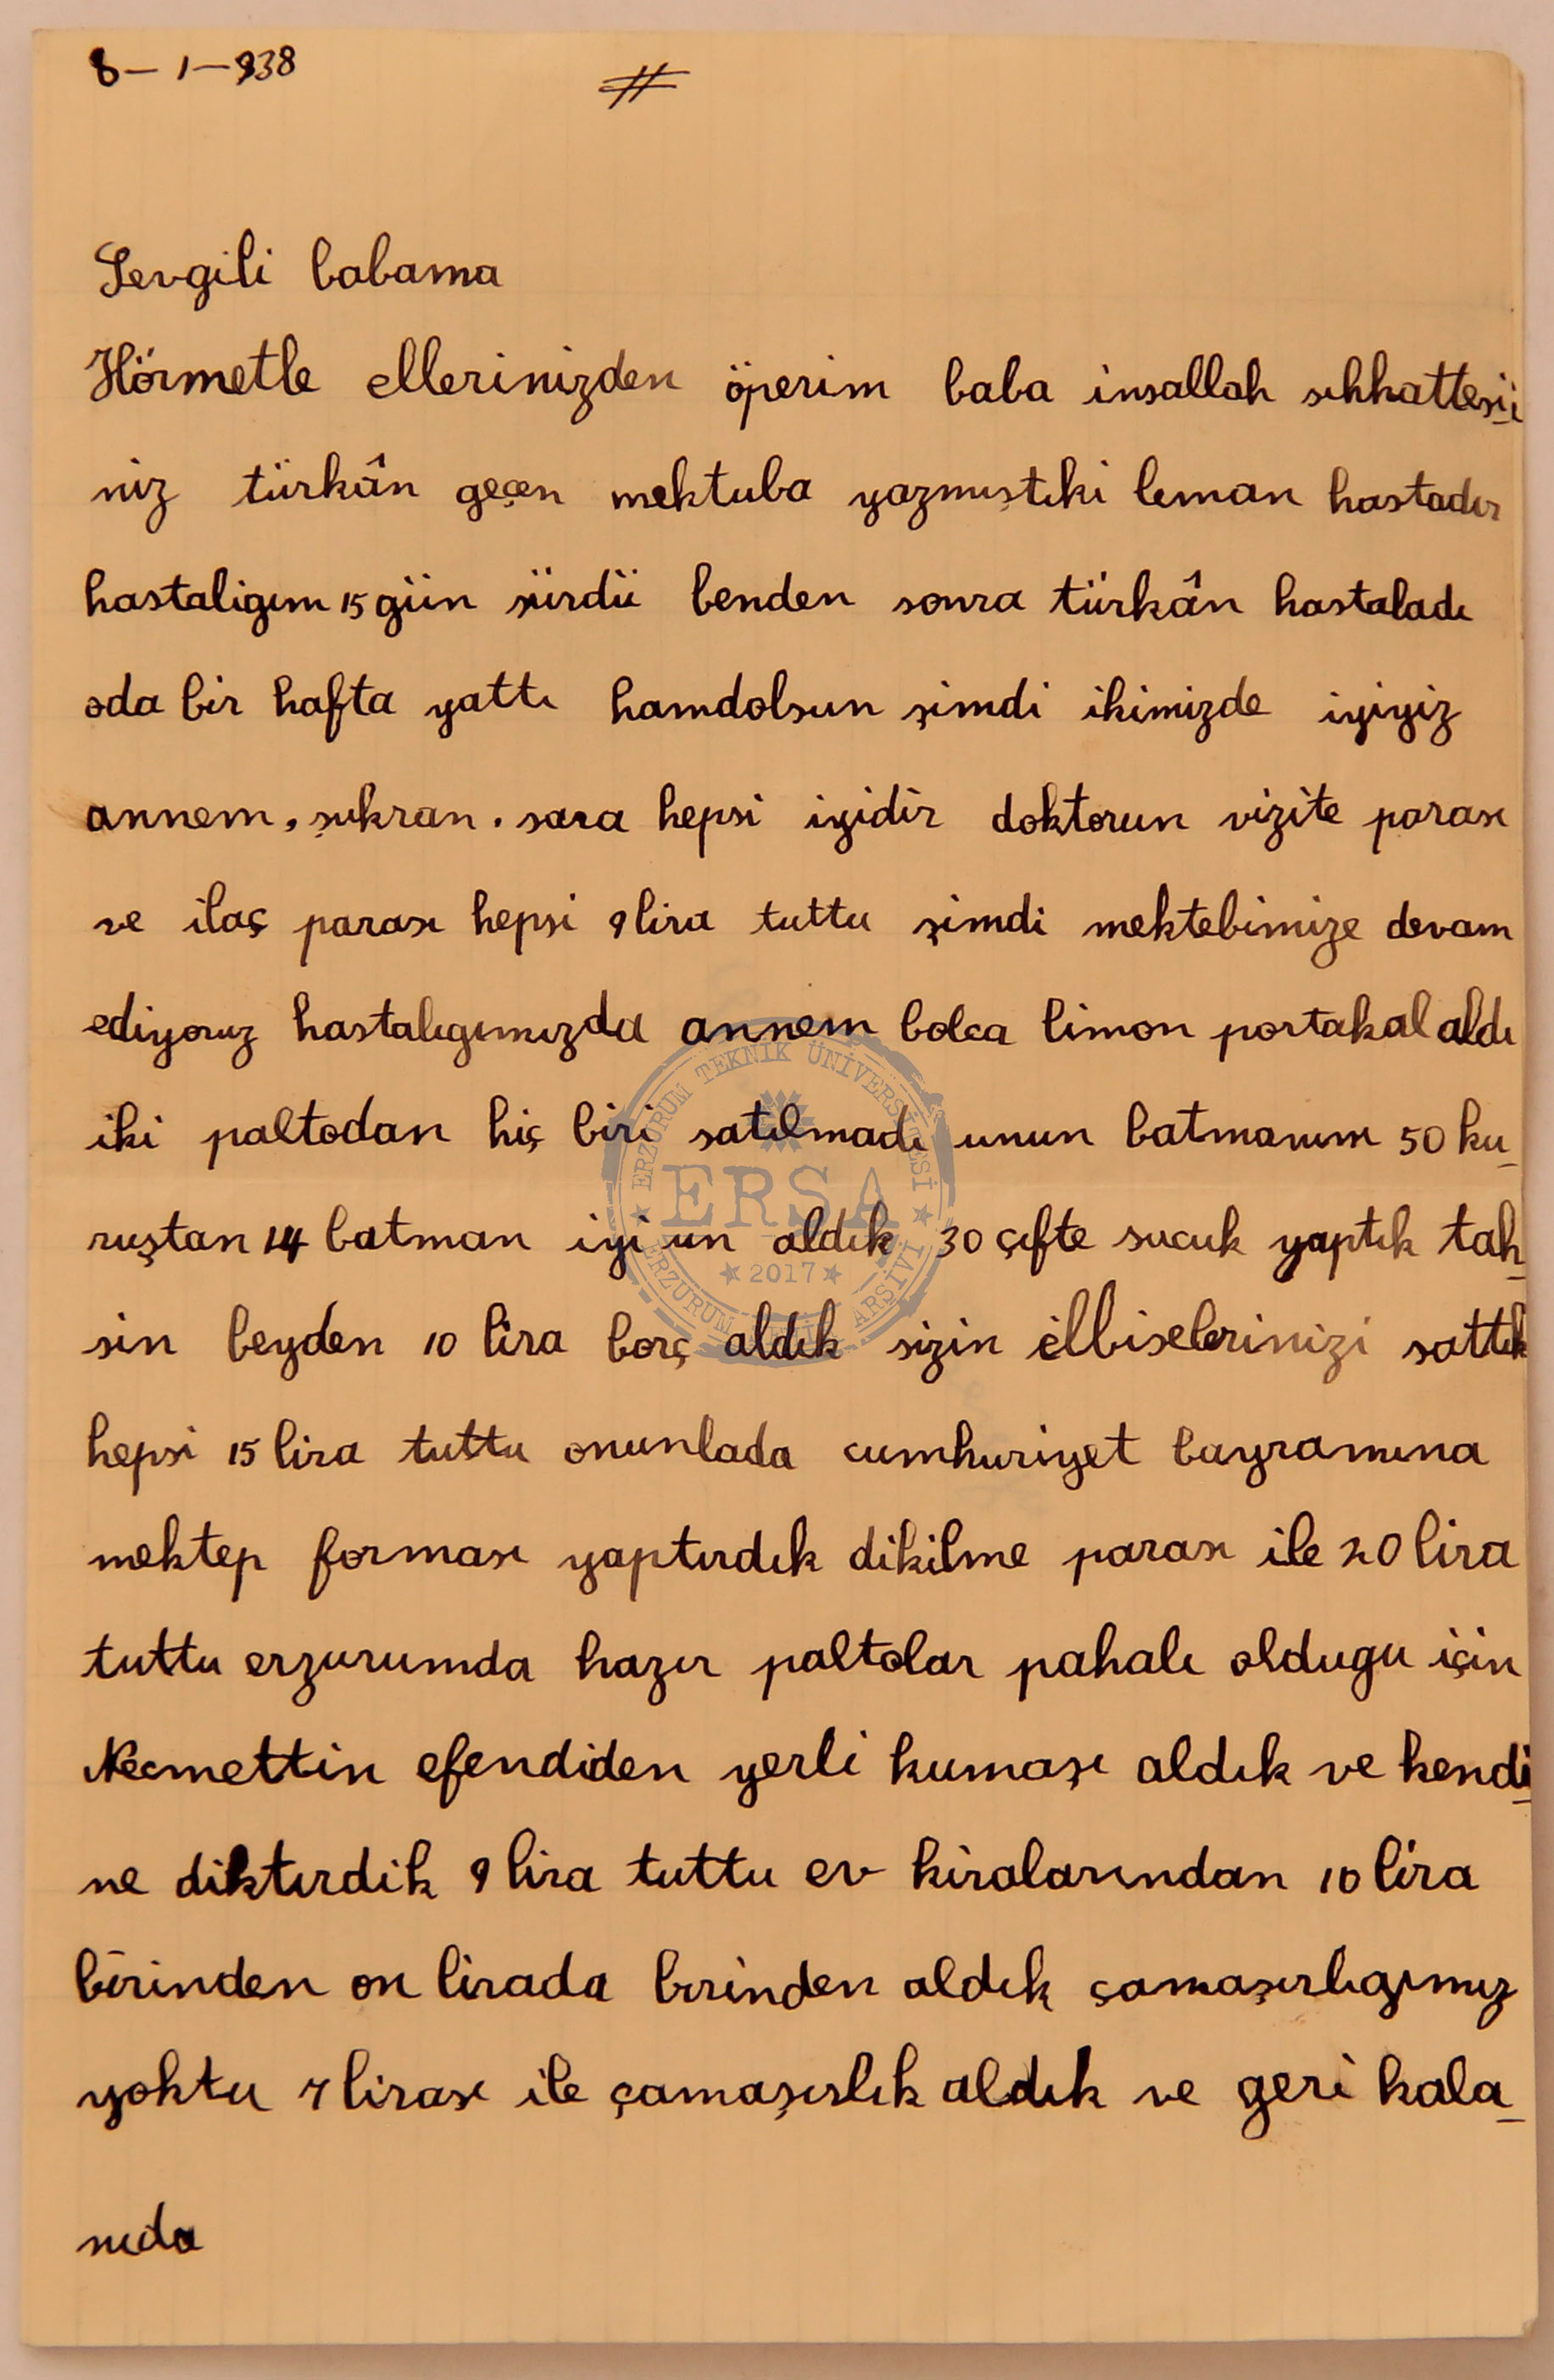 8-1-938
Sevgili babama
Hörmetle ellerinizden öperim baba insallah sıhhattesi
niz türkân geçen mektuba yazmıştıki leman hastadır
hastaligım 15 gün sürdü benden sonra türkân hastaladı
oda bir hafta yattı hamdolsun şimdi ikimizde iyiyiz
annem, şukran. sara hepsi iyidir doktorun vizite parası
ve ilaç parası hepsi 9 lira tuttu şimdi mektebimize devam
ediyoruz hastalıgımızda annem bolca limon portakal aldı
iki paltodan hiç biri satılmadı unun batmanını 50 ku_
ruştan 14 batman iyi un aldık 30 çifte sucuk yaptık tah_
sin beyden 10 lira borç aldık sizin elbiselerinizi sattık
hepsi 15 lira tuttu onunlada cumhuriyet bayramına
mektep forması yaptırdık dikilme parası ile 20 lira
tuttu erzurumda hazır paltolar pahalı oldugu için
Necmettin efendiden yerli kumaşı aldık ve kendi_
ne diktırdik 9 lira tuttu ev kiralarından 10 lira
birinden on lirada birinden aldık çamaşırlıgımız
yoktu 7 lirası ile çamaşırlık aldık ve geri kala_
nıda
ERZURUM TEKNİK ÜNİVERSİTESİ
ERSA
2017
ERZURUM ARŞİVİ